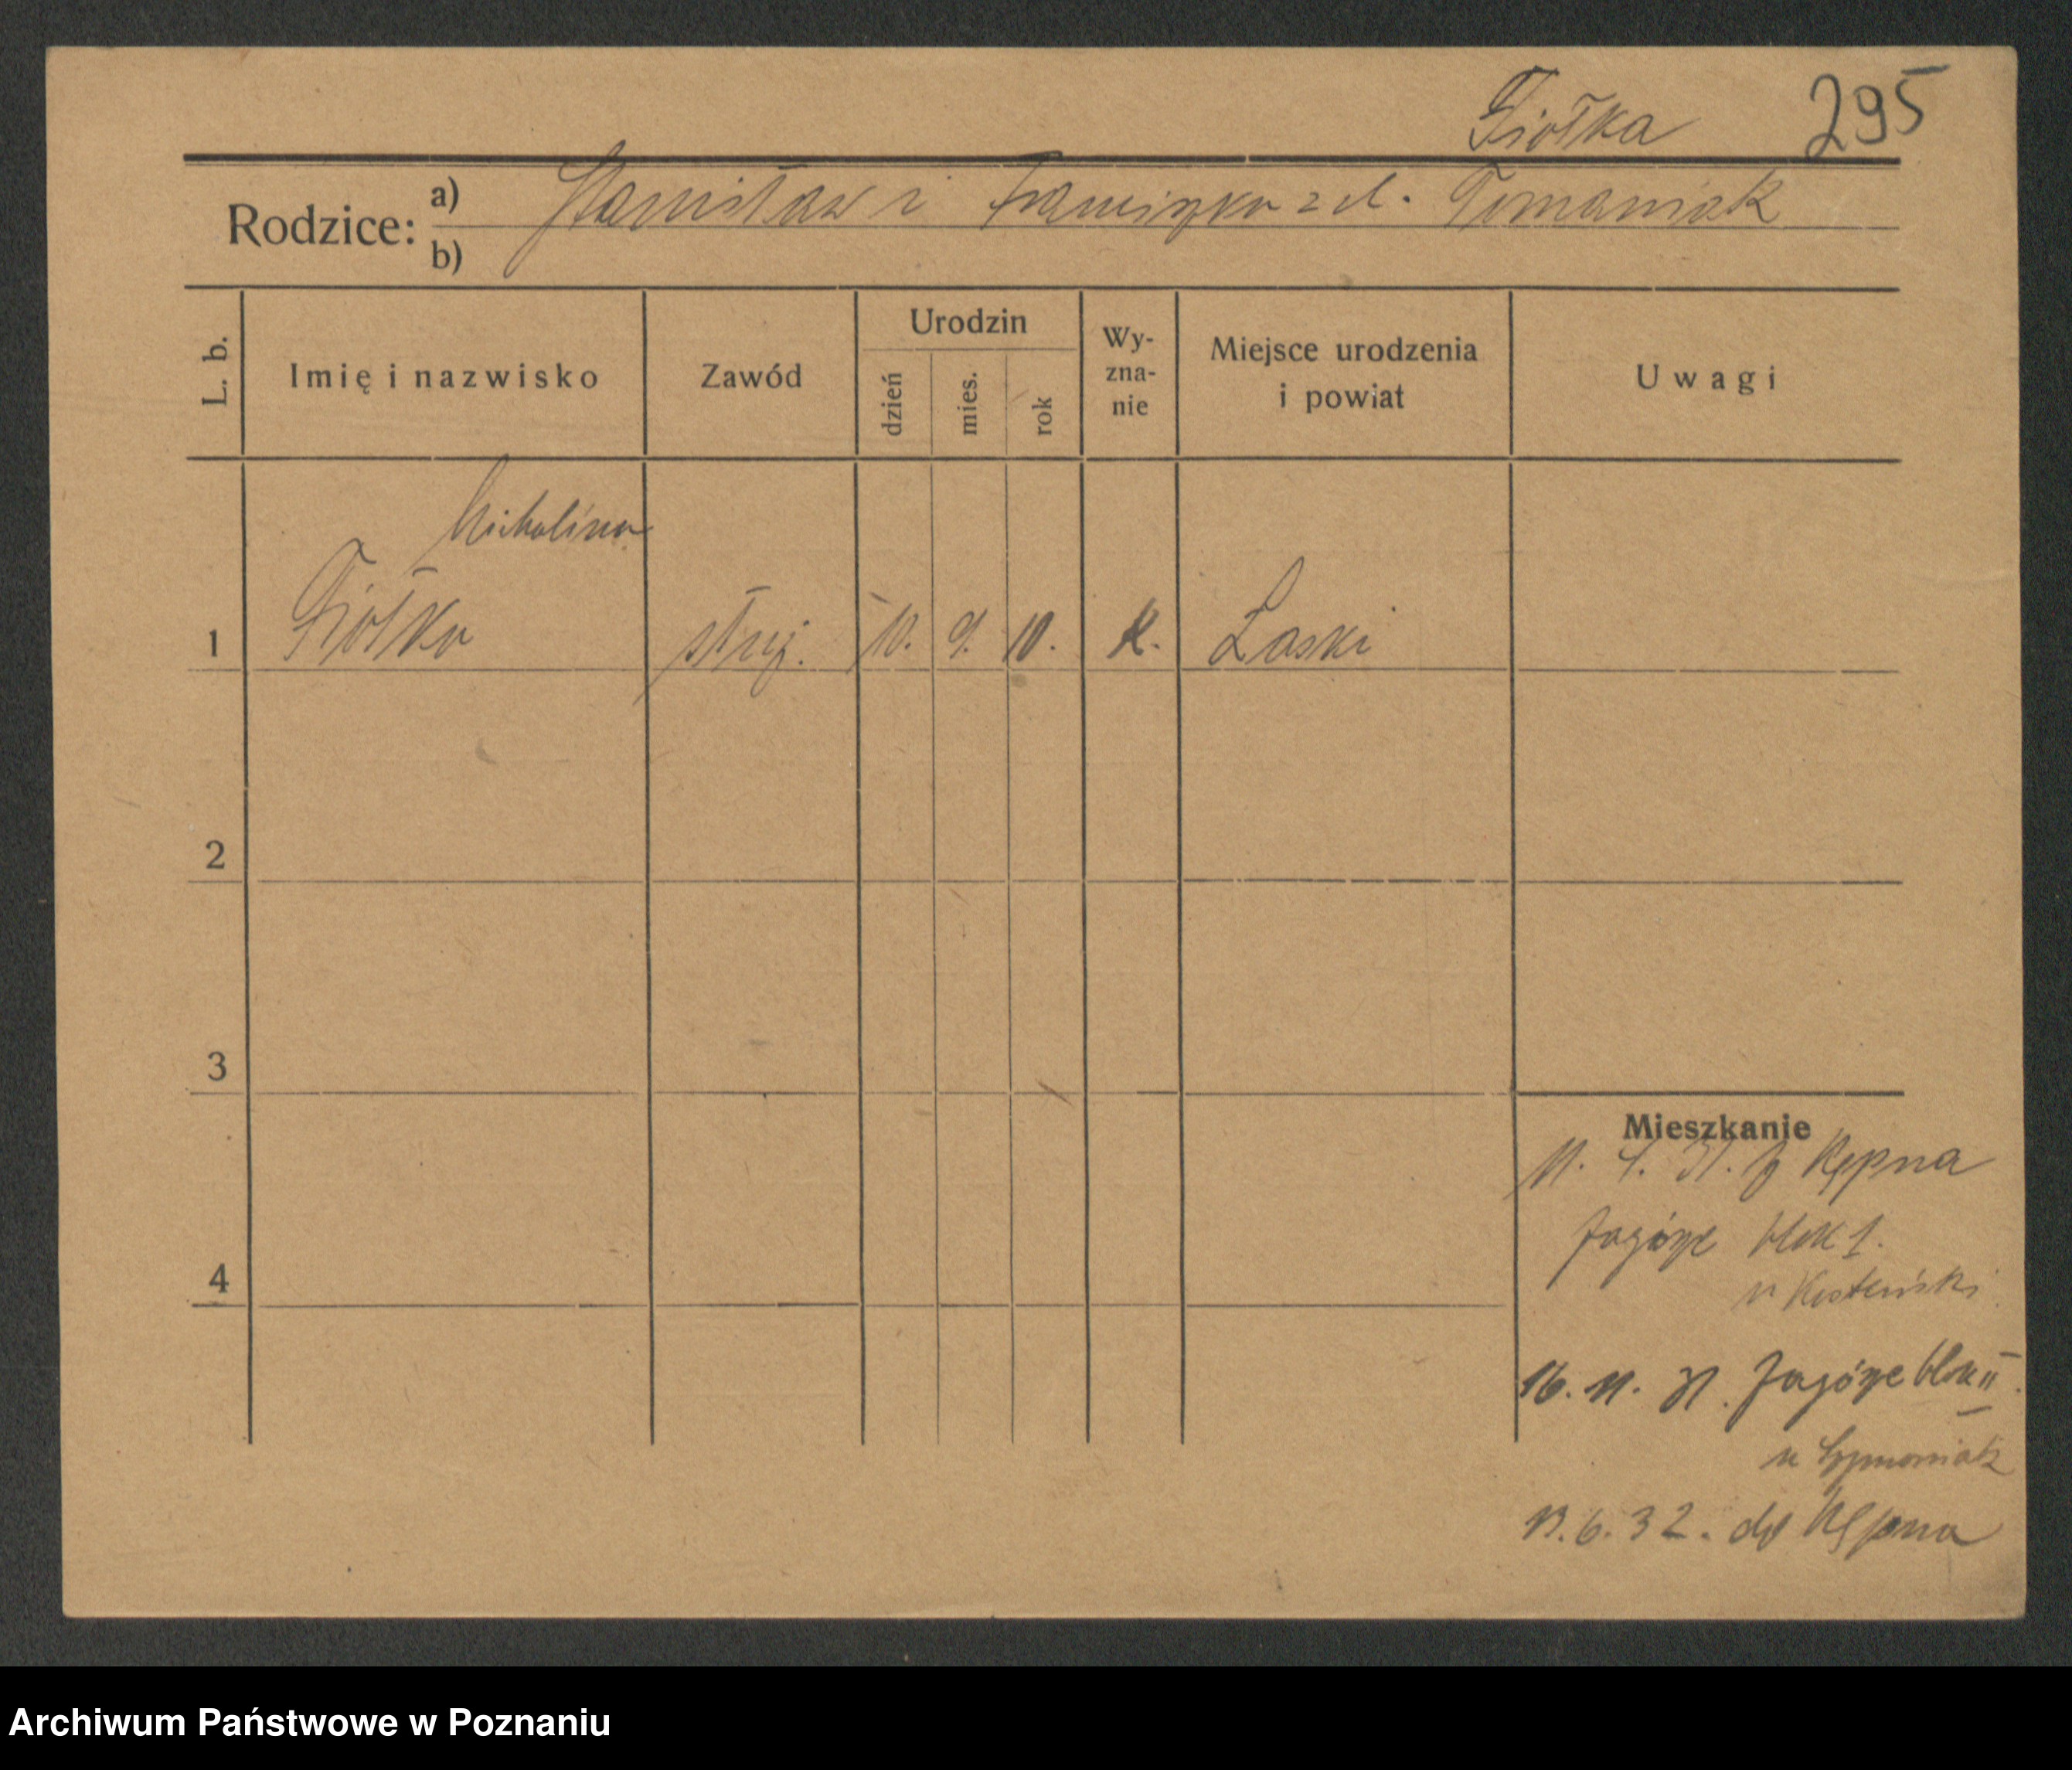 Fiołka 295
Rodzice: a) Stanisław i Franciszka z d. Tomaniak
b)
L. b. Imię i nazwisko Zawód Urodzin dzień mies. rok Wy-zna-nie Miejsce urodzenia i powiat Uwagi
Michalina
1 Fiołka służ. 10. 9. 10. K. Laski
2
3
Mieszkanie
4. 31. z Kępna
Zagórze blok 1.
4
u
16. 11. 31. Zagórze blok II.
u Szymoniak
13. 6. 32. do Kępna
Archiwum Państwowe w Poznaniu